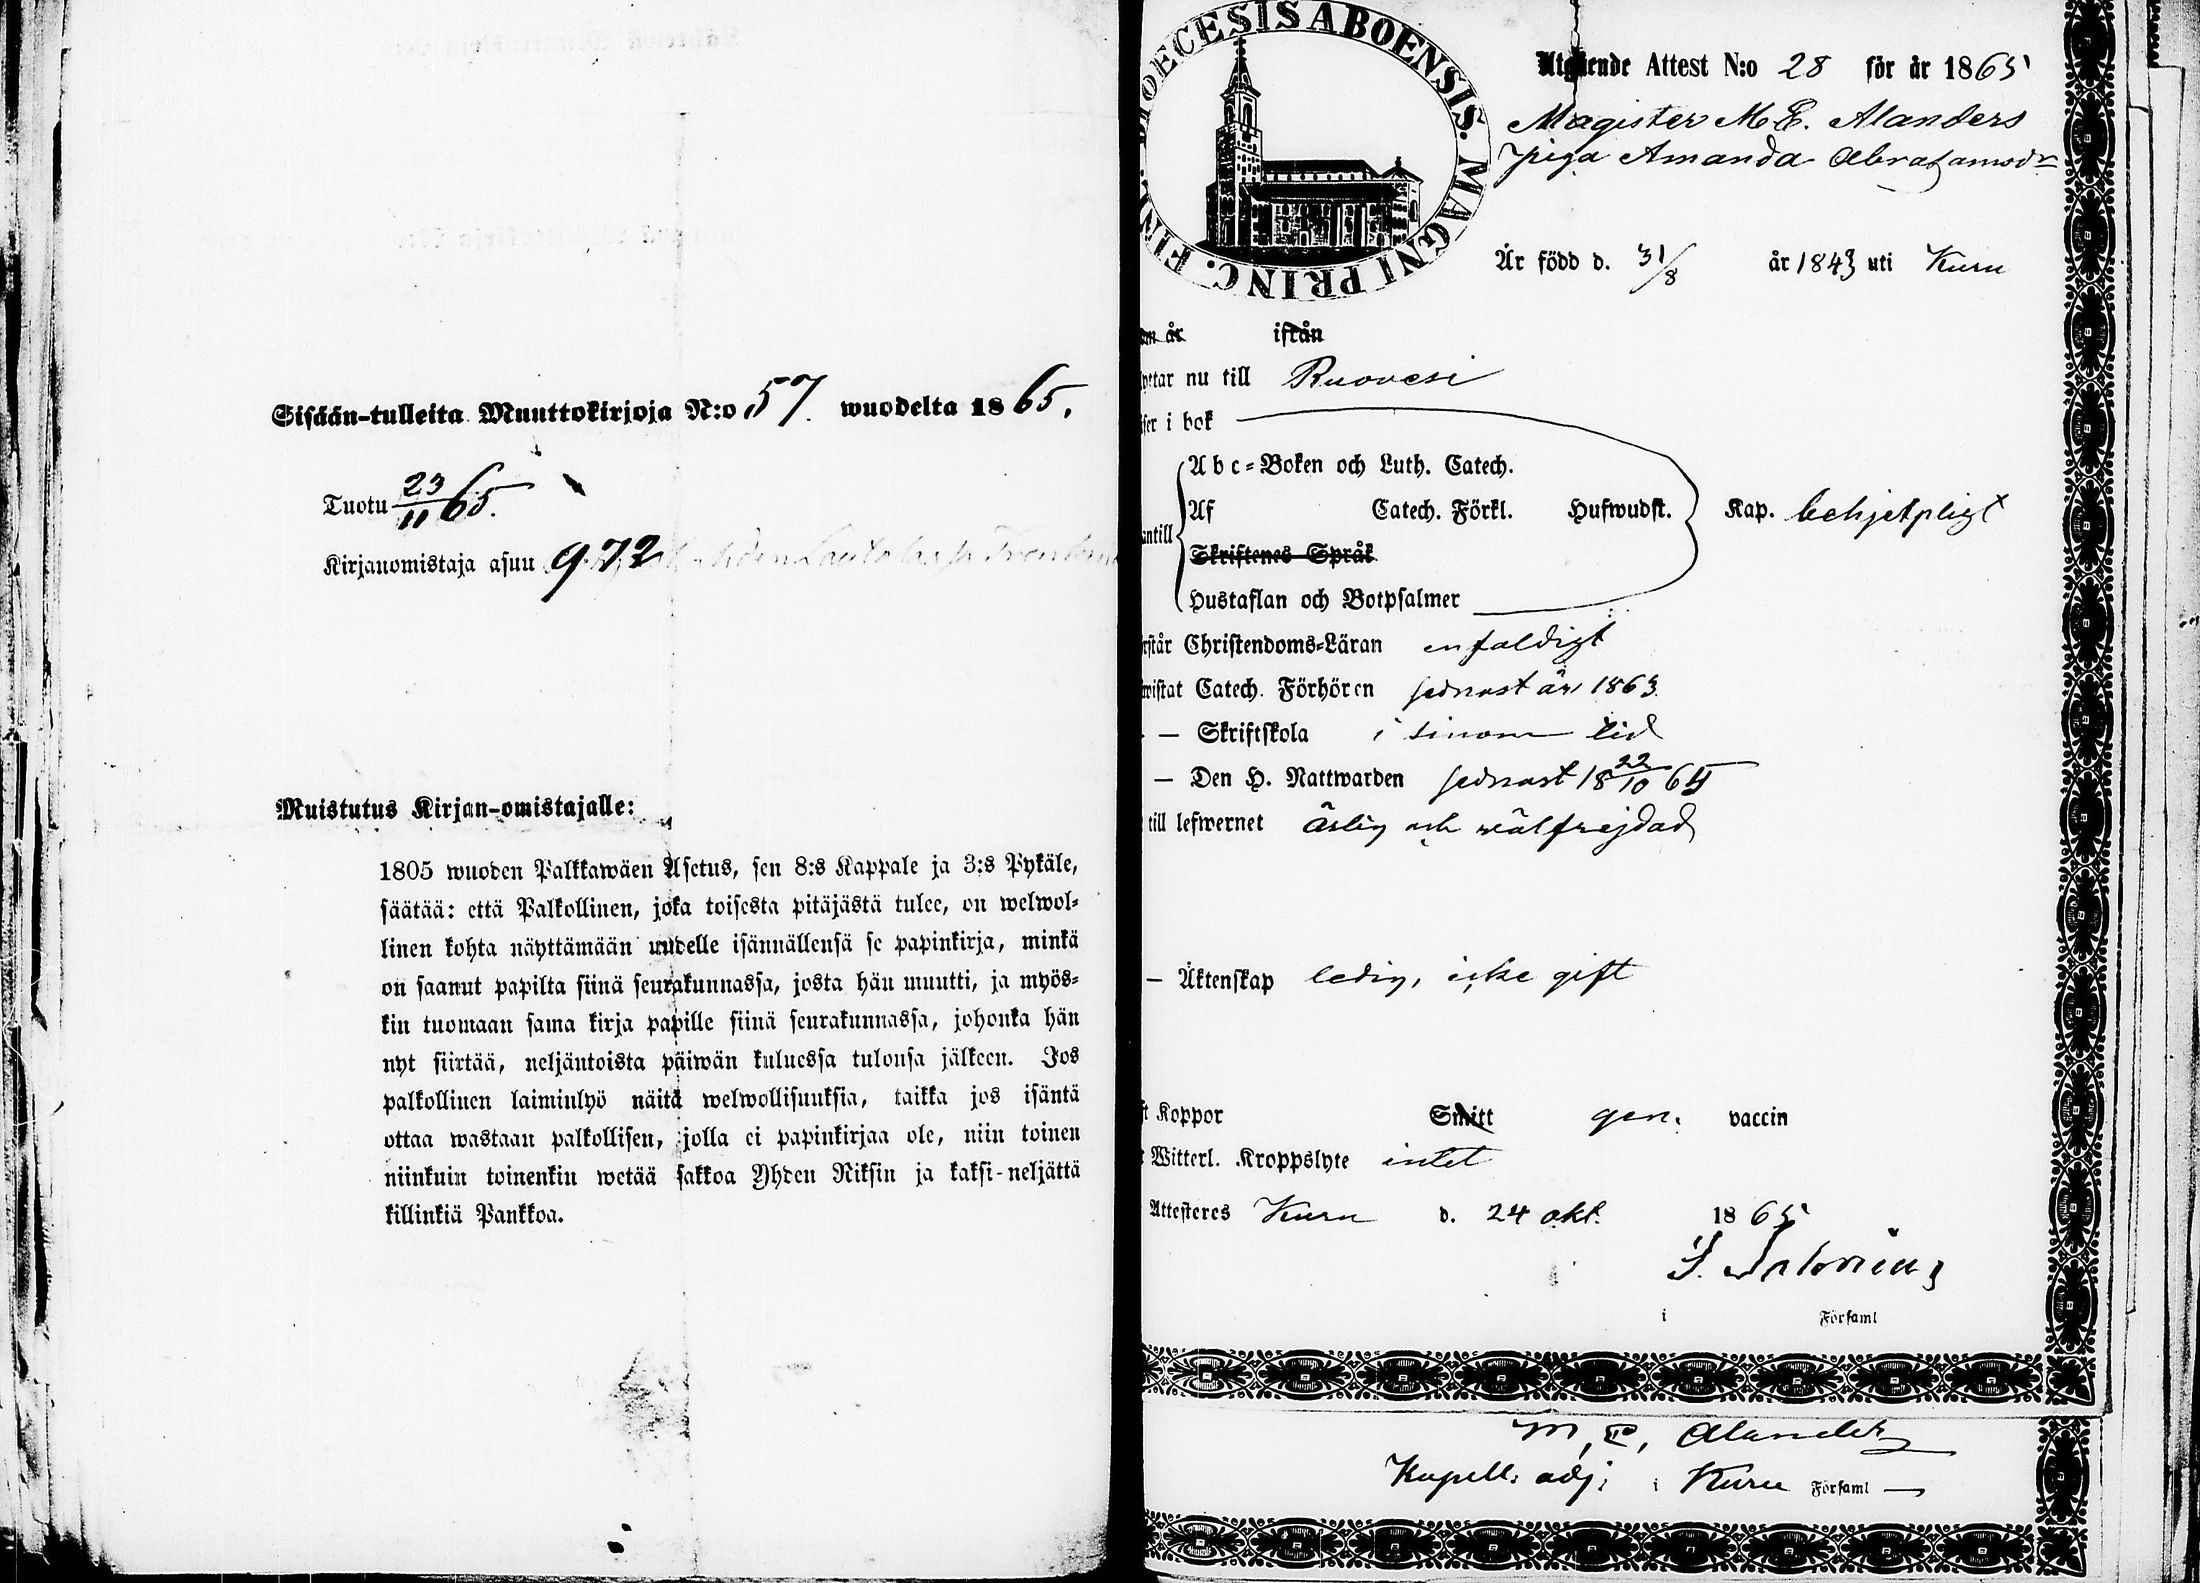 Sisään-tulleita Muuttokirjoja N:o 57. wuodelta 1865.
Tuotu 23/11 65.
Kirjanomistaja asuu 972
Muistutus Kirjan-omistajalle:
1805 wuoden Palkkawäen Asetus, sen 8:s Kappale ja 3:s Pykäle,
säätää: että Palkollinen, joka toisesta pitäjästä tulee, on welwol-
linen kohta näyttämään uudelle isännällensä se papinkirja, minkä
on saanut papilta siinä seurakunnassa, josta hän muutti, ja myös-
kin tuomaan sama kirja papille siinä seurakunnassa, johonka hän
nyt siirtää, neljäntoista päiwän kuluessa tulonsa jälkeen. Jos
palkollinen laiminlyö näitä welwollisuuksia, taikka jos isäntä
ottaa wastaan palkollisen, jolla ei papinkirjaa ole, niin toinen
niinkuin toinenkin wetää sakkoa Yhden Riksin ja kaksi-neljättä
killinkiä Pankkoa.
DIOECESIS ABOENSIS. MAGNI PRINC. FINL.
Utgående Attest N:o 28 för år 1865
Magister M E. Alanders
piga Amanda Abrahamsdr
Är född d. 31/8 år 1843 uti Kuru
år ifrån
nu till Ruovesi
i bok
Abc-Boken och Luth. Catech.
Af Catech. Förkl. Hufwudst. Kap. behjelpligt
Skriftenes Språk
Hustaflan och Botpsalmer
Christendoms-Läran enfaldigt
Catech. Förhören sednast år 1863
— Skriftskola i sinom tid
— Den H. Nattwarden sednast 18 22/10 65
till lefwernet ärlig och välfrejdad
— Äktenskap ledig, icke gift
Koppor Smitt gen. vaccin
Witterl. Kroppslyte intet
Attesteres Kuru d. 24 okt. 1865
i Församl
M, E, Alander
Kapell: adj: i Kuru Församl —